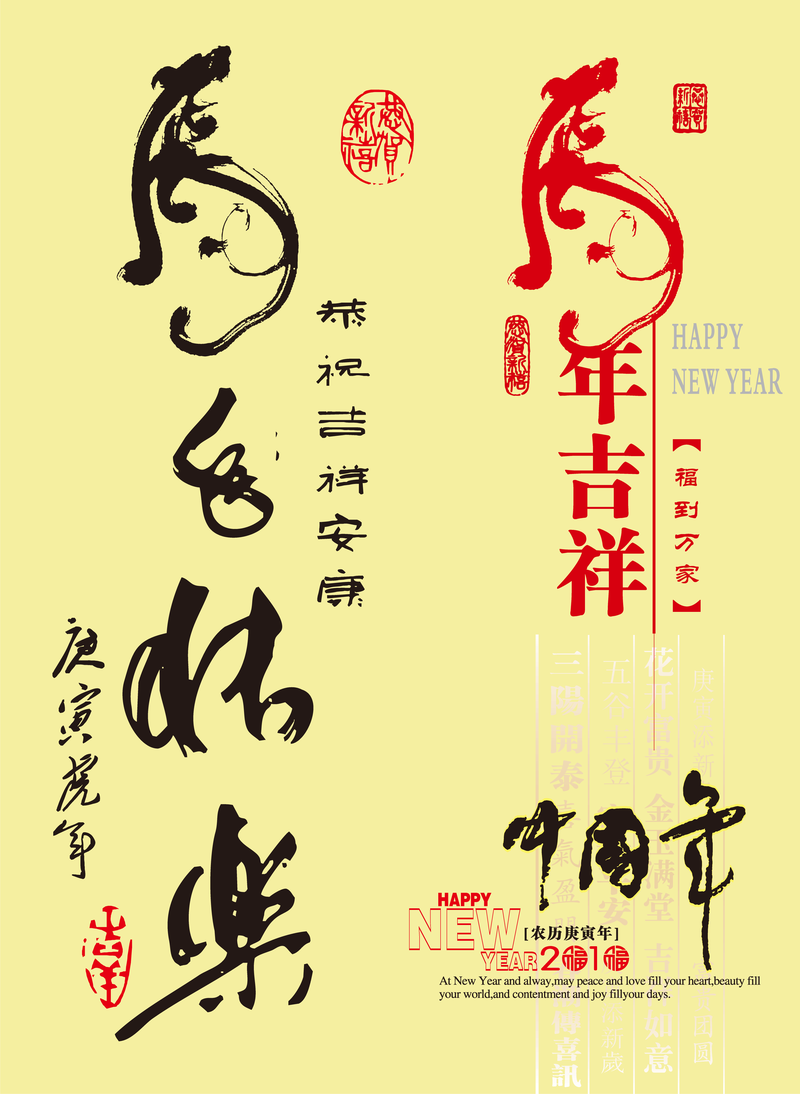 虎年快樂
恭賀新禧
恭祝吉祥安康
庚寅虎年
吉祥
虎年吉祥
恭賀新禧
恭賀新禧
HAPPY
NEW YEAR
【福到万家】
三陽開泰 喜氣盈 傳喜訊
五谷丰登 安 新歲
花开富贵 金玉满堂 吉 如意
庚 添新 团圆
中國年
HAPPY
NEW
YEAR
[农历庚寅年]
2福1福
At New Year and alway,may peace and love fill your heart,beauty fill
your world,and contentment and joy fillyour days.